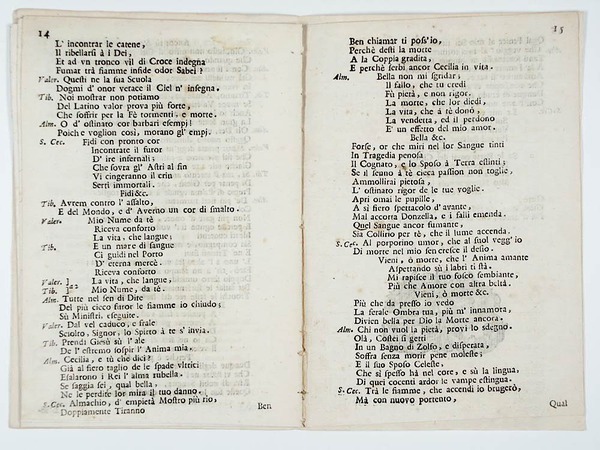 14
L' incontrar le catene,
Il ribellarsi à i Dei,
Et ad vn tronco vil di Croce indegna
Fumar trà fiamme infide odor Sabei?
Valer. Questi ne la sua Scuola
Dogmi d' onor verace il Ciel n' insegna.
Tib. Noi mostrar non potiamo
Del Latino valor prova più forte,
Che soffrir per la Fè tormenti, e morte.
Alm. O d' ostinato cor barbari esempj!
Poiche voglion così, morano gl' empj.
S. Cec. Fidi con pronto cor
Incontrate il furor
D' ire infernali;
Che sovra gl' Astri al fin
Vi cingeranno il crin
Serti immortali.
Fidi &c.
Tib. Avrem contro l' assalto,
E del Mondo, e d' Averno un cor di smalto.
Valer. Mio Nume da tè
Riceva conforto
La vita, che langue;
Tib. E un mare di sangue
Ci guidi nel Porto
D' eterna mercè.
Riceva conforto
Valer. La vita, che langue,
Tib. à 2 Mio Nume, da tè.
Alm. Tutte nel sen di Dite
Del più cieco furor le fiamme io chiudo;
Sù Ministri, eseguite.
Valer. Dal vel caduco, e frale
Sciolto, Signor, lo Spirto à te s' invia.
Tib. Prendi Giesù sù l' ale
De l' estremo sospir l' Anima mia.
Alm. Cecilia, e tù che dici?
Già al fiero taglio de le spade vltrici
Esalarono i Rei l' alma rubella.
Se saggia sei, qual bella,
Ne le perdite lor mira il tuo danno.
S. Cec. Almachio, d' empietà Mostro più rio,
Doppiamente Tiranno
Ben
15
Ben chiamar ti poss'io,
Perchè desti la morte
A la Coppia gradita,
E perchè serbi ancor Cecilia in vita.
Alm. Bella non mi sgridar;
Il fallo, che tu credi
Fù pietà, e non rigor.
La morte, che lor diedi,
La vita, che à tè donò,
La vendetta, ed il perdono
E' un effetto del mio amor.
Bella &c.
Forse, or che miri nel lor Sangue tinti
In Tragedia penosa
Il Cognato, e lo Sposo à Terra estinti;
Se il senno à tè cieca passion non toglie,
Ammollirai pietosa,
L' ostinato rigor de le tue voglie.
Apri omai le pupille,
A sì fiero spettacolo d'avante,
Mal accorta Donzella, e i falli emenda.
Quel Sangue ancor fumante,
Sia Collirio per tè, che il lume accenda.
S. Cec. Al porporino umor, che al suol vegg' io
Di morte nel mio sen cresce il desio.
Vieni, ò morte, che l' Anima amante
Aspettando sù i labri ti stà.
Mi rapisce il tuo fosco sembiante,
Più che Amore con altra beltà.
Vieni, ò morte &c.
Più che da presso io vedo
La ferale Ombra tua, più m' innamora,
Divien bella per Dio la Morte ancora.
Alm. Chi non vuol la pietà, provi lo sdegno.
Olà, Costei si getti
In un Bagno di Zolfo, e disperata,
Soffra senza morir pene moleste;
E il suo Sposo Celeste,
Che sì spesso hà nel core, e sù la lingua,
Di quei cocenti ardor le vampe estingua.
S. Cec. Trà le fiamme, che accendi io brugerò,
Mà con nuovo portento,
Qual